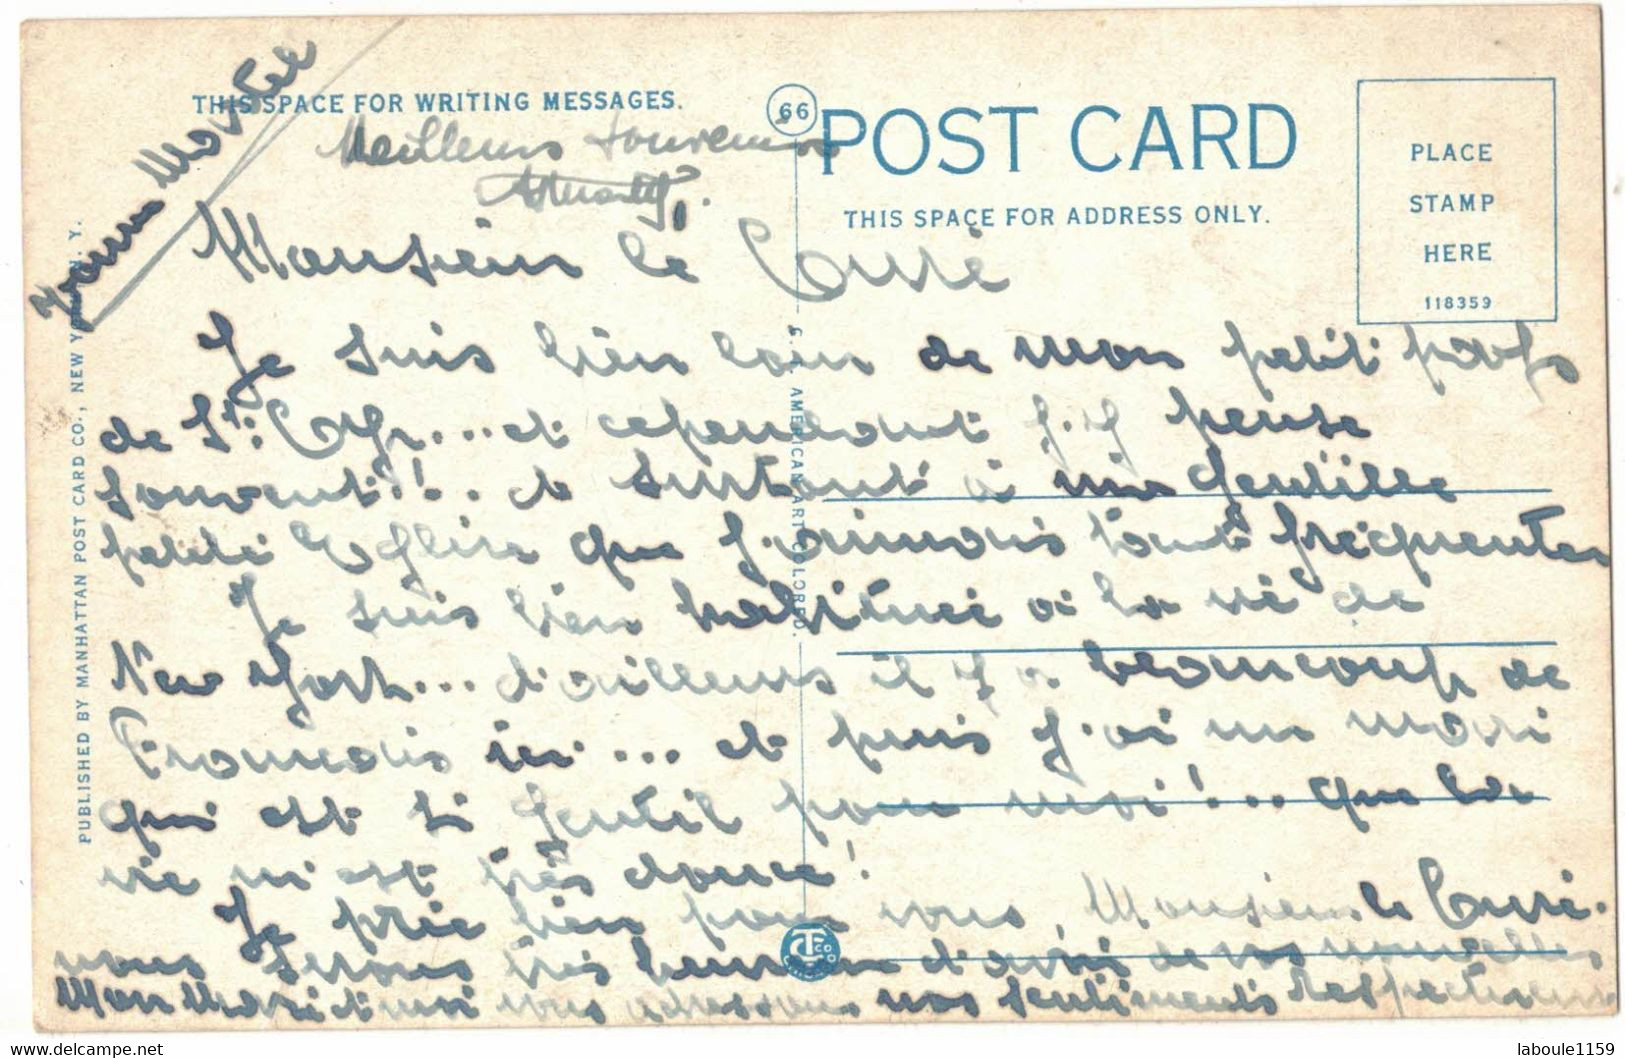 THIS SPACE FOR WRITING MESSAGES.
66
POST CARD
THIS SPACE FOR ADDRESS ONLY.
PLACE
STAMP
HERE
118359
PUBLISHED BY MANHATTAN POST CARD CO., NEW YORK, N. Y.
C. T. AMERICAN ART COLORED.
Meilleurs souvenirs
Monsieur le Curé
Je suis bien loin de mon petit pays
de St. Cyr... et cependant j'y pense
souvent!!.. et surtout à ma gentille
petite Eglise que j'aimais tant fréquenter
Je suis bien habituée à la vie de
New York... d'ailleurs il y a beaucoup de
Français ici... et puis j'ai un mari
qui est si gentil pour moi!... que la
vie m'est très douce!
Je prie bien pour vous, Monsieur le Curé.
nous serons très heureux d'avoir de vos nouvelles
Mon Mari et moi vous adressons nos sentiments respectueux
www.delcampe.net
laboule1159